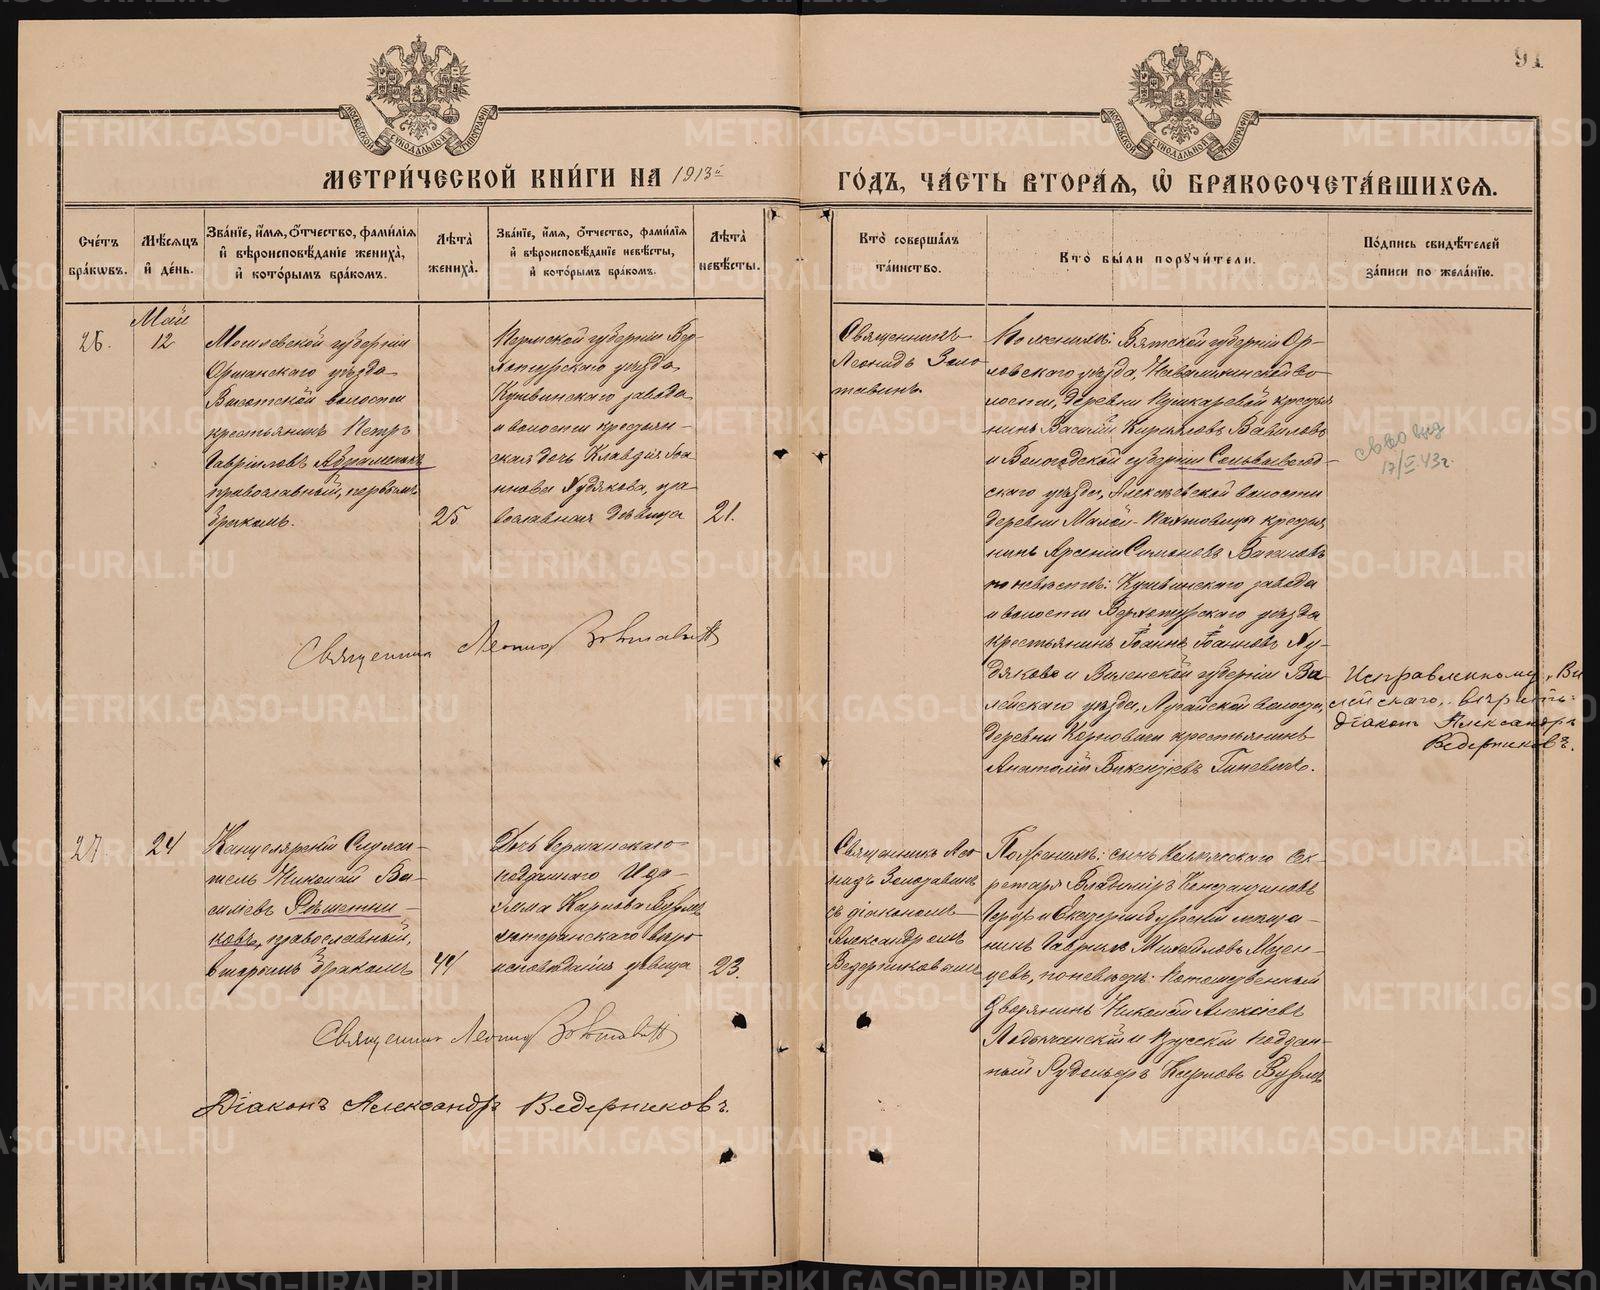 91
МОСКОВСКОЙ СѴНОДАЛЬНОЙ ТИПОГРАФІИ
МОСКОВСКОЙ СѴНОДАЛЬНОЙ ТИПОГРАФІИ
МЕТРИ́ЧЕСКОЙ КНИ́ГИ НА 1913й
ГО́ДЪ, ЧА́СТЬ ВТОРА́Я, Ѡ҆ БРАКОСОЧЕТА́ВШИХСЯ.
Сче́тъ бра́кѡвъ.
Мѣ́сяцъ и҆ де́нь.
Зва́нїе, и҆́мя, ѻ҆́тчество, фами́лїя и҆ вѣроисповѣ́данїе жениха̀, и҆ кото́рымъ бра́комъ.
Лѣ́та жениха̀.
Зва́нїе, и҆́мя, ѻ҆́тчество, фами́лїя и҆ вѣроисповѣ́данїе невѣ́сты, и҆ кото́рымъ бра́комъ.
Лѣ́та невѣ́сты.
Кто̀ соверша́лъ та́инство.
Кто̀ бы́ли поручи́тели.
По́дпись свидѣ́телей за́писи по жела́нїю.
26.
Май
12
Могилевской губерніи
Оршанскаго уѣзда
Высотской волости
крестьянинъ Петръ
Гавріиловъ Абраменокъ
православный, первымъ
бракомъ.
25
Пермской губерніи Вер-
хотурскаго уѣзда
Кушвинскаго завода
и волости крестьян-
ская дочь Клавдія Іоа-
ннова Худякова, пра-
вославная дѣвица
21.
Священникъ
Леонидъ Золо
тавинъ.
По женихѣ: Вятской губерніи Ор-
ловскаго уѣзда, во-
лости, деревни Пушкаревой крестья
нинъ Василій Кирилловъ Вавиловъ
и Вологодской губерніи Сольвычегод-
скаго уѣзда, Алексѣевской волости
деревни Малой- крестья
нинъ Арсеній Симоновъ
по невѣстѣ: Кушвинскаго завода
и волости Верхотурскаго уѣзда
крестьянинъ Іоаннъ Іоанновъ Ху-
дяковъ и Виленской губерніи Ви-
лейскаго уѣзда, волости,
деревни крестьянинъ
Анатолій Викентіевъ Гиневичъ.
17/II 43г.
Исправленному „Ви
лейскаго„ вѣрить:
Діаконъ Александръ
Ведерниковъ.
Священникъ Леонидъ Золотавинъ
27.
24
Канцелярскій Служи-
тель Николай Ва-
силіевъ Рѣшетни-
ковъ, православный,
вторымъ бракомъ
44
Дочь Германскаго
подданнаго Ида-
Эмма Карлова Вурмъ
лютеранскаго вѣро
исповѣданія дѣвица
23.
Священникъ Лео
нидъ Золотавинъ
съ діакономъ
Александромъ
Ведерниковымъ
По женихѣ: сынъ Коллежскаго Сек-
ретаря Владиміръ Константиновъ
и Екатеринбургскій мѣща-
нинъ Гавріилъ Михайловъ
цевъ, по невѣстѣ: Потомственный
дворянинъ Николай Алексіевъ
и Прусскій поддан-
ный Рудольфъ Карловъ Вурмъ
Священникъ Леонидъ Золотавинъ
Діаконъ Александръ Ведерниковъ.
METRIKI.GASO-URAL.RU